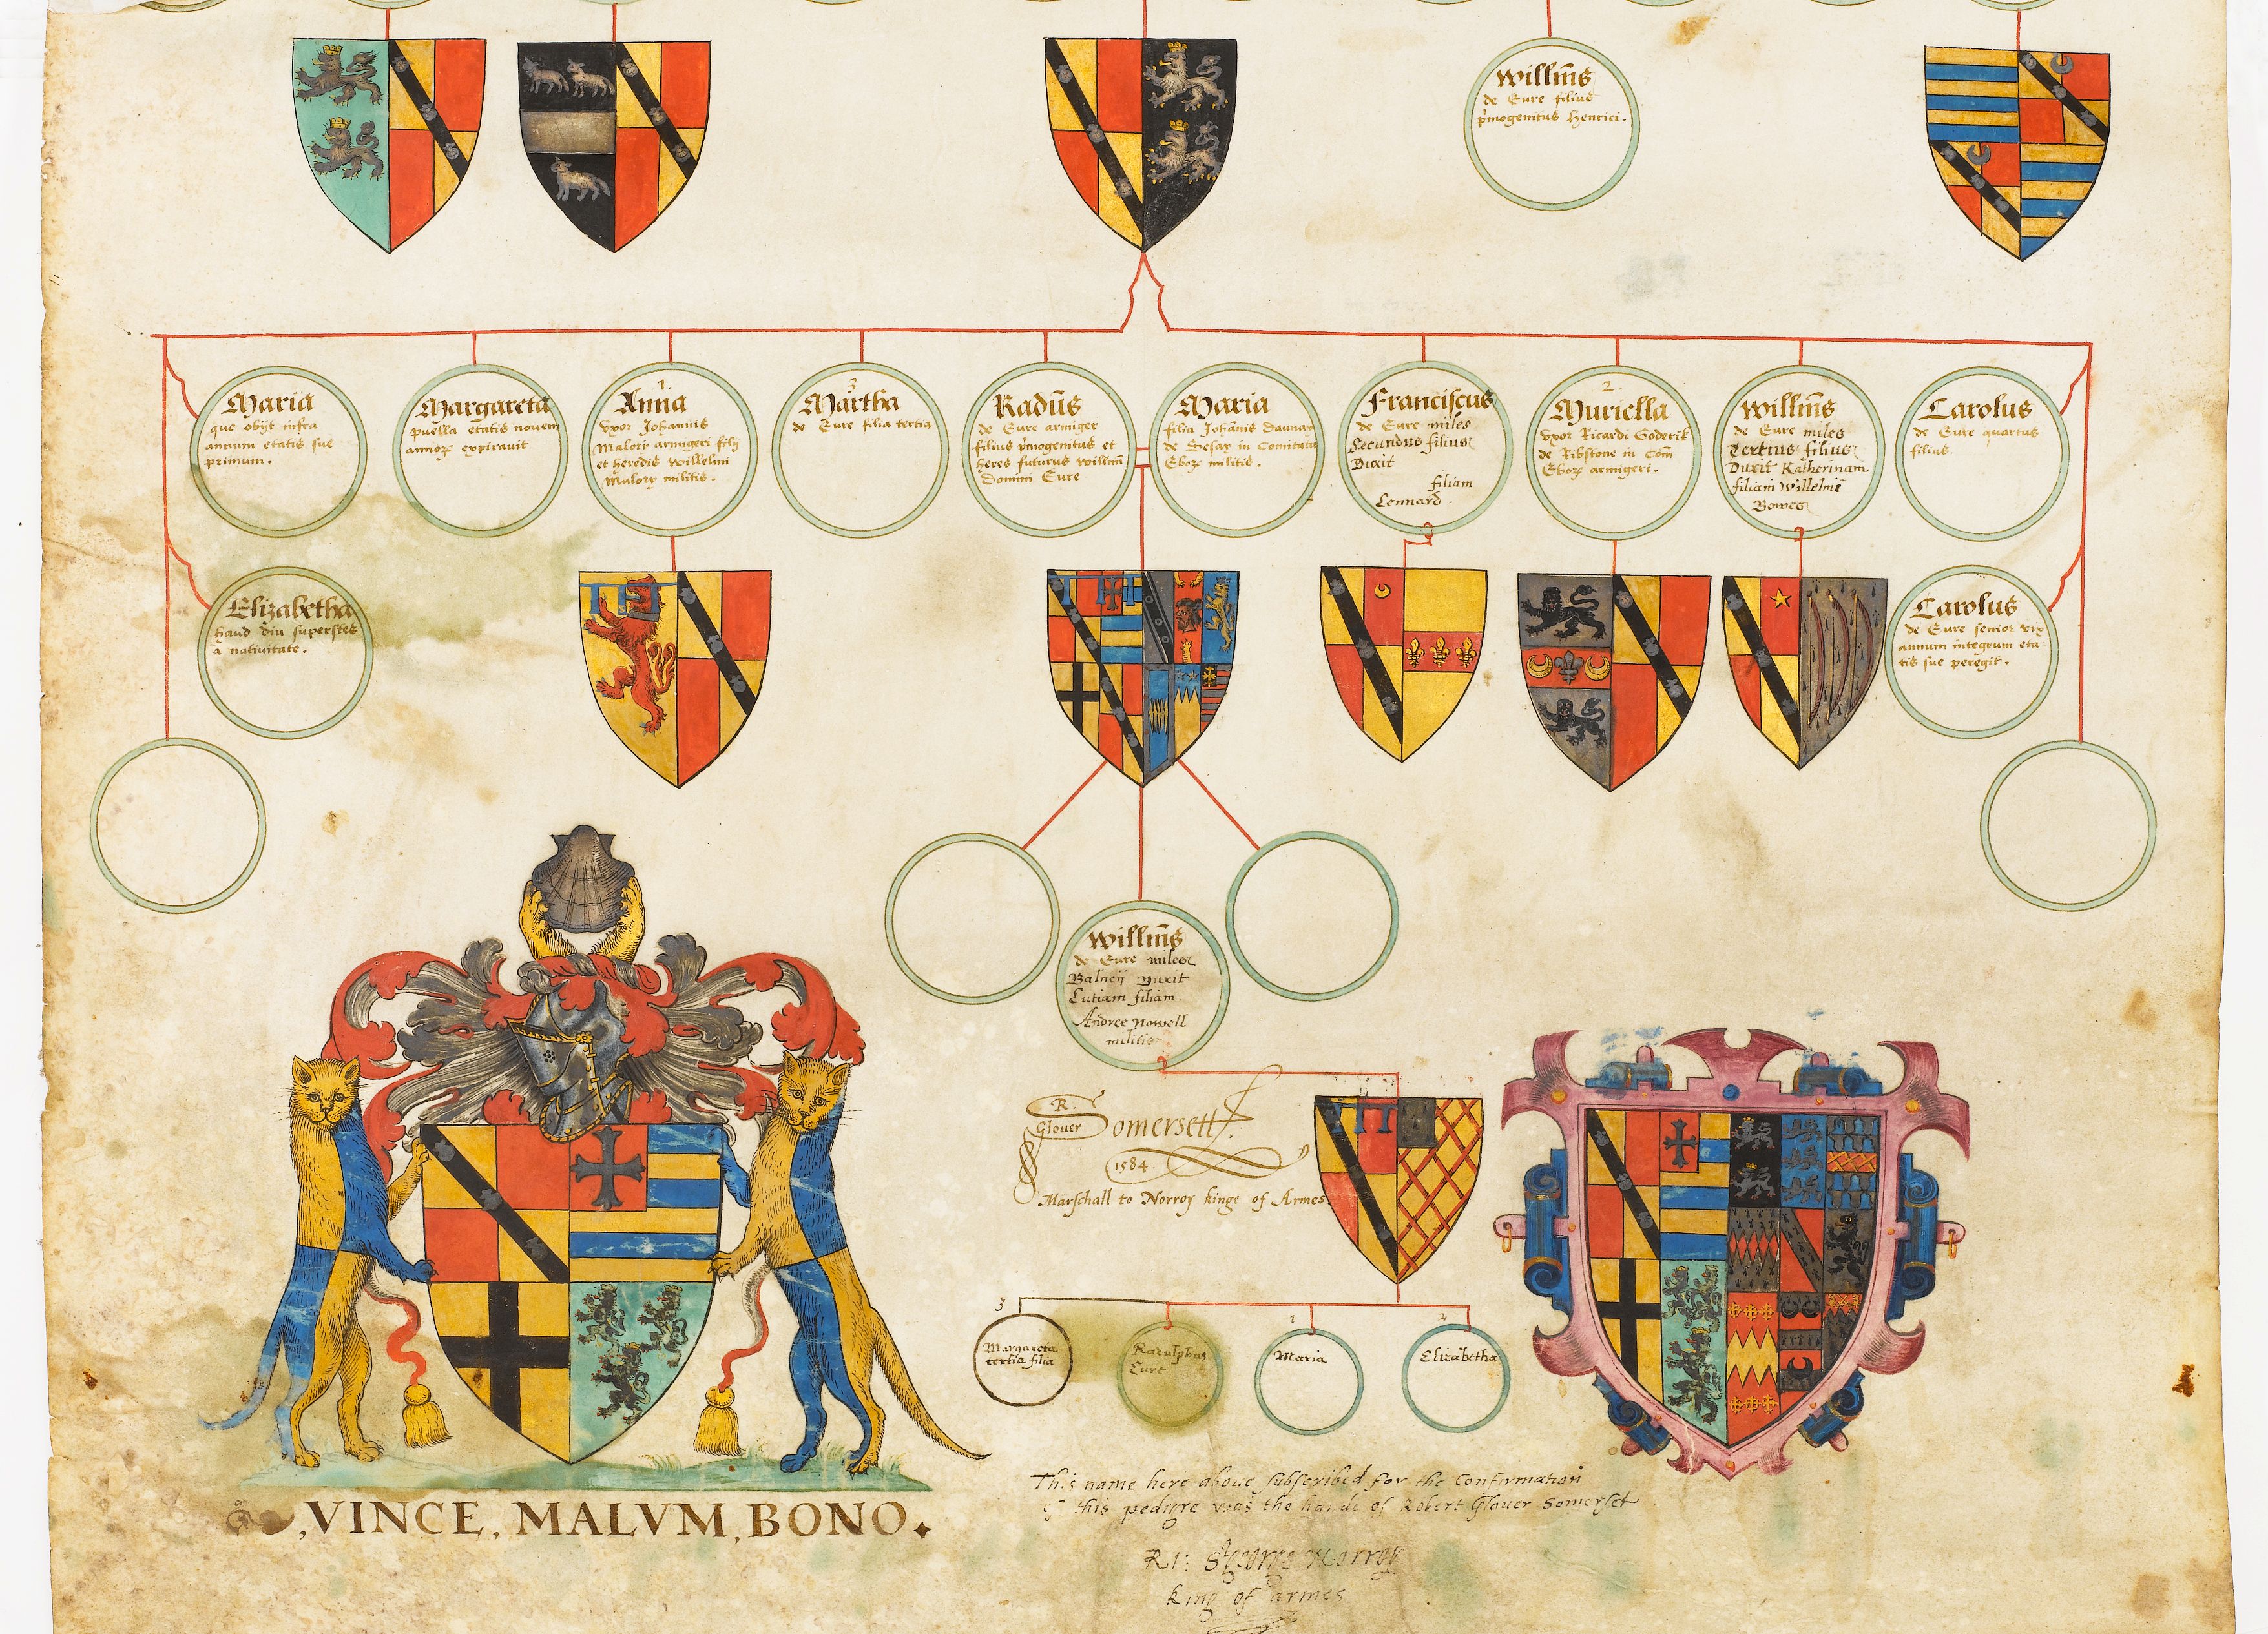 Willm̄s
de Eure filius
p̄mogenitus Henrici.
Maria
que obijt infra
annum etatis sue
primum.
Margareta
puella etatis nouem
annoꝝ expirauit
1.
Anna
vxor Johannis
Malory armigeri filij
et heredis Willelmi
Malory militis.
3
Martha
de Eure filia tertia
Radūs
de Eure armiger
filius p̄mogenitus et
heres futurus Willm̄
Domini Eure
Maria
filia Johānis Daunay
de Sesay in Comitatu
Eboꝝ militis.
Franciscus
de Eure miles
Secundus filius
Duxit
filiam
Lennard.
2
Muriella
vxor Ricardi Goderik
de Ribstone in Com̄
Eboꝝ armigeri.
Willm̄s
de Eure miles
Tertius filius
Duxit Katherinam
filiam Willelmi
Bowes
Carolus
de Eure quartus
filius
Elizabetha
haud diu superstes
a natiuitate.
Carolus
de Eure senior vix
annum integrum eta
tis sue peregit.
Willm̄s
de Eure miles
Balneij Duxit
Lutiam filiam
Andree Nowell
militis
R.
Glouer Somersett
1584
Marschall to Norroy kinge of Armes
3
Margareta
tertia filia
Radulphus
Eure
1
Maria
2
Elizabetha
This name here aboue subscribed for the Confirmation
of this pedigre was the hande of Robert Glouer Somerset
RI: St George Norroy
king of armes
,VINCE, MALVM, BONO.